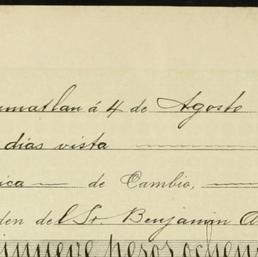 matlan á 4 de Agosto
dias vista
ica de Cambio,
den del Sr. Benjamin A
nueve pesos ochen